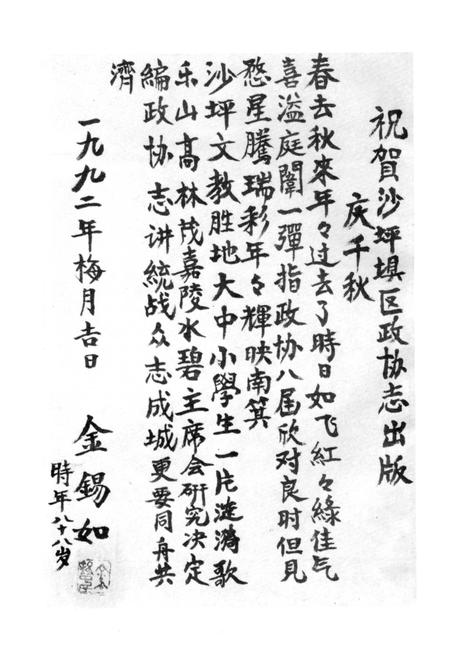 祝賀沙坪埧区政协志出版
庆千秋
春去秋來年々过去了時日如飞紅々綠佳气
喜溢庭闈一彈指政协八届欣对良时但見
婺星騰瑞彩年々輝映南箕
沙坪文教胜地大中小學生一片漣漪歌
乐山高林茂嘉陵水碧主席会研究决定
編政协志讲統战众志成城更要同舟共
濟
一九九二年梅月吉日
金錫如
時年八十八岁